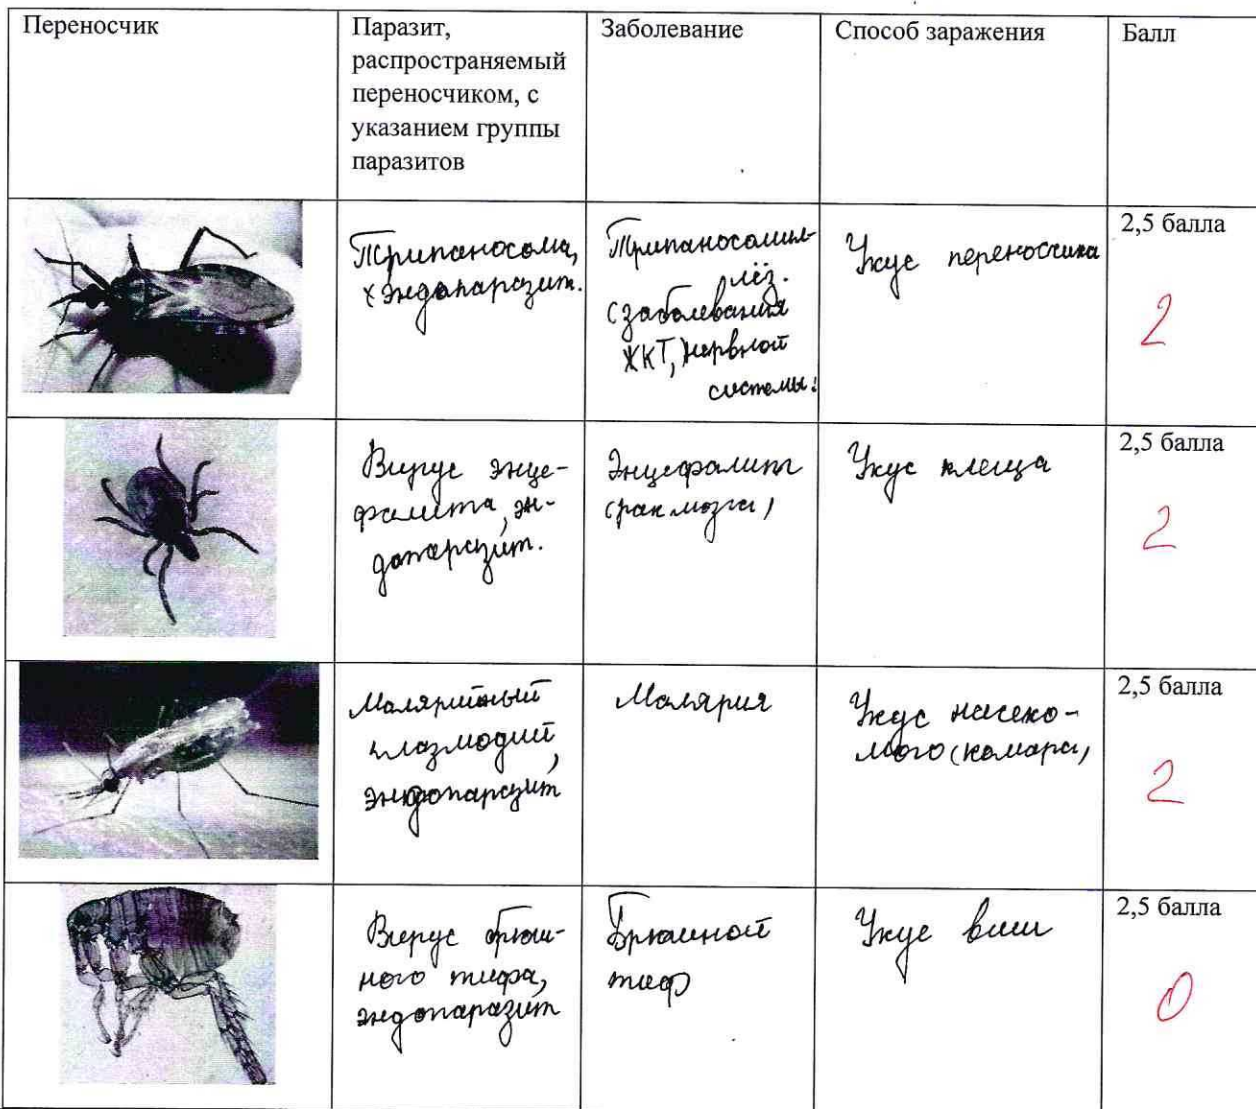 Переносчик
Паразит,
распространяемый
переносчиком, с
указанием группы
паразитов
Заболевание
Способ заражения
Балл
Трипаносома,
эндопаразит.
Трипаносомил-
лёз.
(заболевания
ЖКТ, нервной
системы.
Укус переносчика
2,5 балла
2
Вирус энце-
фалита, эн-
допаразит.
Энцефалит
(рак мозга)
Укус клеща
2,5 балла
2
Малярийный
плазмодий,
эндопаразит
Малярия
Укус насеко-
мого (комара)
2,5 балла
2
Вирус брюш-
ного тифа,
эндопаразит
Брюшной
тиф
Укус вши
2,5 балла
0